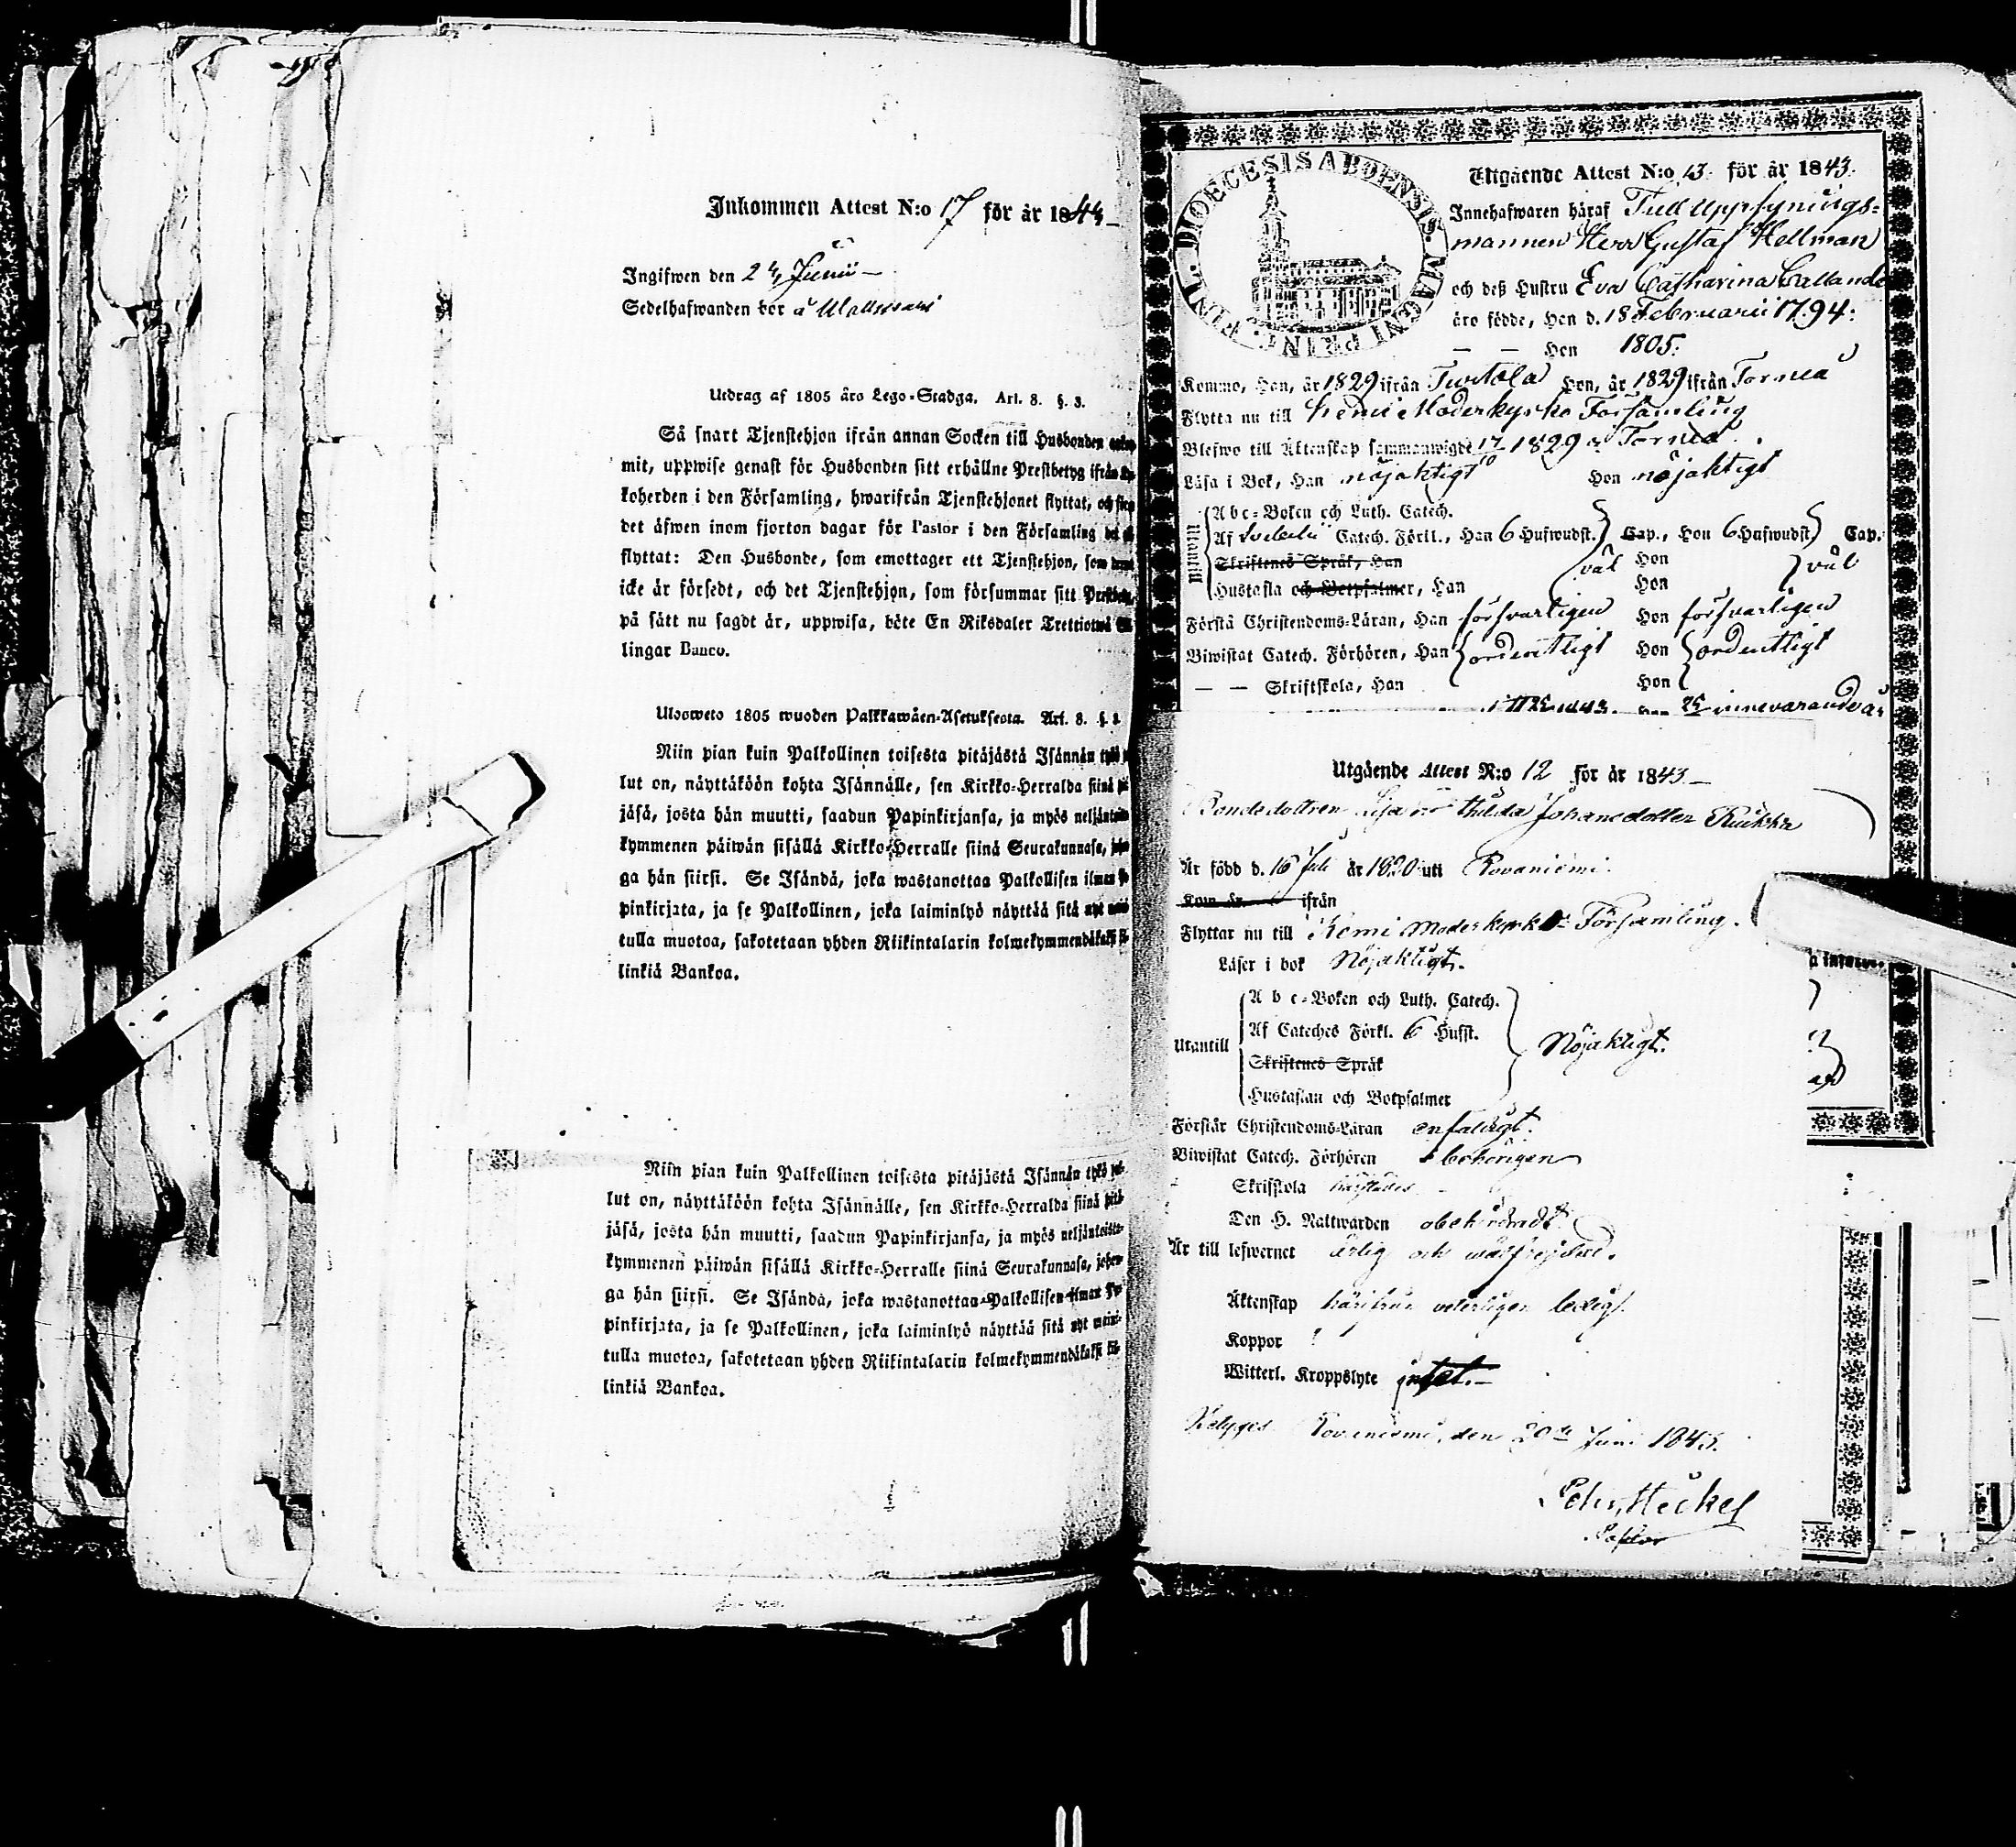 Inkommen Attest N:o 17 för år 1843
Ingifwen den 24 Junii
Sedelhafwanden bor å
Utdrag af 1805 års Lego-Stadga. Art. 8. §. 3.
Så snart Tjenstehjon ifrån annan Socken till Husbonden
mit, uppwise genast för Husbonden sitt erhållne Prestbetyg ifrån
koherden i den Församling, hwarifrån Tjenstehjonet flyttat, och
det äfwen inom fjorton dagar för Pastor i den Församling
flyttat: Den Husbonde, som emottager ett Tjenstehjon, som
icke är försedt, och det Tjenstehjon, som försummar sitt
på sätt nu sagdt är, uppwisa, böte En Riksdaler Trettiotwå
lingar Banco.
Ulosweto 1805 wuoden Palkkawäen-Asetuksesta. Art. 8. §. 3.
Niin pian kuin Palkollinen toisesta pitäjästä Isännän
lut on, näyttäköön kohta Isännälle, sen Kirkko-Herralda siinä
jäsä, josta hän muutti, saadun Papinkirjansa, ja myös
kymmenen päiwän sisällä Kirkko-Herralle siinä Seurakunnasa,
ga hän siirsi. Se Isändä, joka wastanottaa Palkollisen ilman
pinkirjata, ja se Palkollinen, joka laiminlyö näyttää sitä
tulla muotoa, sakotetaan yhden Riikintalarin kolmekymmendäkaksi
linkiä Bankoa.
Niin pian kuin Palkollinen toisesta pitäjästä Isännän tykö
lut on, näyttäköön kohta Isännälle, sen Kirkko-Herralda siinä
jäsä, josta hän muutti, saadun Papinkirjansa, ja myös neljäntoista-
kymmenen päiwän sisällä Kirkko-Herralle siinä Seurakunnasa,
ga hän siirsi. Se Isändä, joka wastanottaa Palkollisen ilman
pinkirjata, ja se Palkollinen, joka laiminlyö näyttää sitä nyt
tulla muotoa, sakotetaan yhden Riikintalarin kolmekymmendäkaksi
linkiä Bankoa.
DIOECESIS ABOENSIS. MAGNI PRINC. FINL.
Utgående Attest N:o 13 för år 1843.
Innehafwaren häraf Tull Uppsynings-
mannen Herr Gustaf Hellman
och deß Hustru Eva Catharina
äro födde, Han d. 18 Februarii 1794:
— — Hon 1805:
Kommo, Han, år 1829 ifrån Turtola Hon, år 1829 ifrån Torneå
Flytta nu till Kemi Moderkyrko Församling
Blefwo till Äktenskap sammanwigde 17/10 1829 i Torneå.
Läsa i Bok, Han nöjaktigt Hon nöjaktigt
Utantill
Abc-Boken och Luth. Catech.
Af Svebelii Catech. Förkl., Han 6 Hufwudst. Cap., Hon 6 Hufwudst. Cap.
Skriftenes Språk, Han väl Hon väl
Hustafla och Botpsalmer, Han Hon
Förstå Christendoms-Läran, Han försvarligen Hon försvarligen
Biwistat Catech. Förhören, Han ordentligt Hon ordentligt
— — Skriftskola, Han Hon
innevarande år
Utgående Attest N:o 12 för år 1843
Bondedottren Johansdotter
Är född d. 16 Juli år 1820 uti Rovaniemi.
Kom år ifrån
Flyttar nu till Kemi Moderkyrko Församling.
Läser i bok Nöjaktigt.
Utantill
A b c-Boken och Luth. Catech.
Af Cateches Förkl. 6 Hufst.
Nöjaktigt.
Skriftenes Språk
Hustaflan och Botpsalmer
Förstår Christendoms-Läran enfaldigt.
Biwistat Catech. Förhören behörigen
Skriftskola
Den H. Nattwarden obehindradt
Är till lefwernet ärlig och wälfrejdad.
Äktenskap härifrån veterligen ledig.
Koppor
Witterl. Kroppslyte intet.
Betyges Rovaniemi, den 20de Juni 1843.
Heickel
Pastor